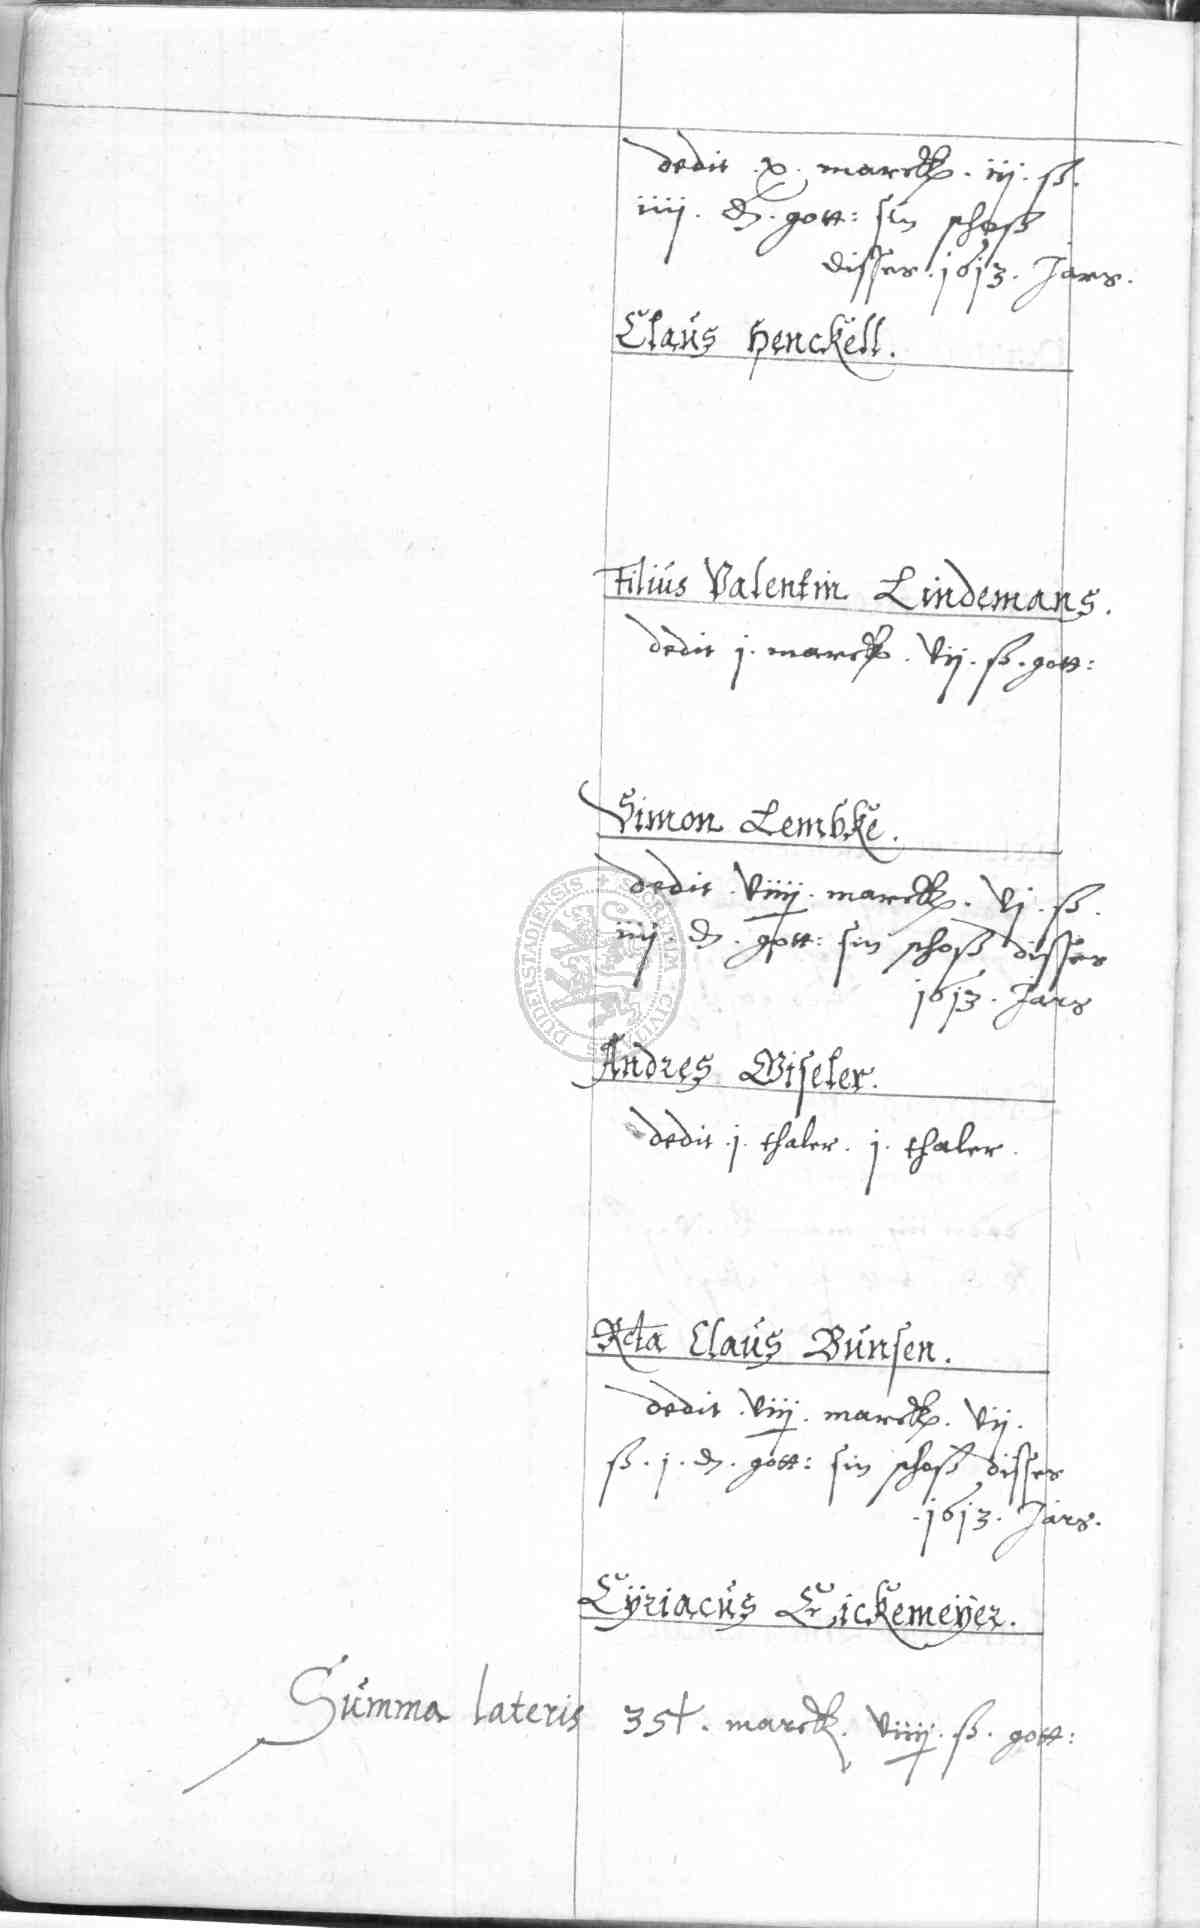 dedit .x. marck. iij. ß.
iiij. ₰. gott: sin schoß
disses .1613. Jars.
Claus Henckell.
Filius Valentin Lindemans.
dedit j. marck. vij. ß. gott:
Simon Lembke.
dedit .viiij. marck. vj. ß.
iiij. ₰. gott: sin schoß disses
1613. Jars
Andres Wiseler.
dedit .j. thaler. j. thaler.
Rcta Claus Bunsen.
dedit .viij. marck. vij.
ß. j. ₰. gott: sin schoß disses
.1613. Jars.
Cÿriacus Eickemeÿer.
Summa lateris 35½. marck. viiij. ß. gott:
SECRETUM CIVITATIS DUDERSTADIENSIS